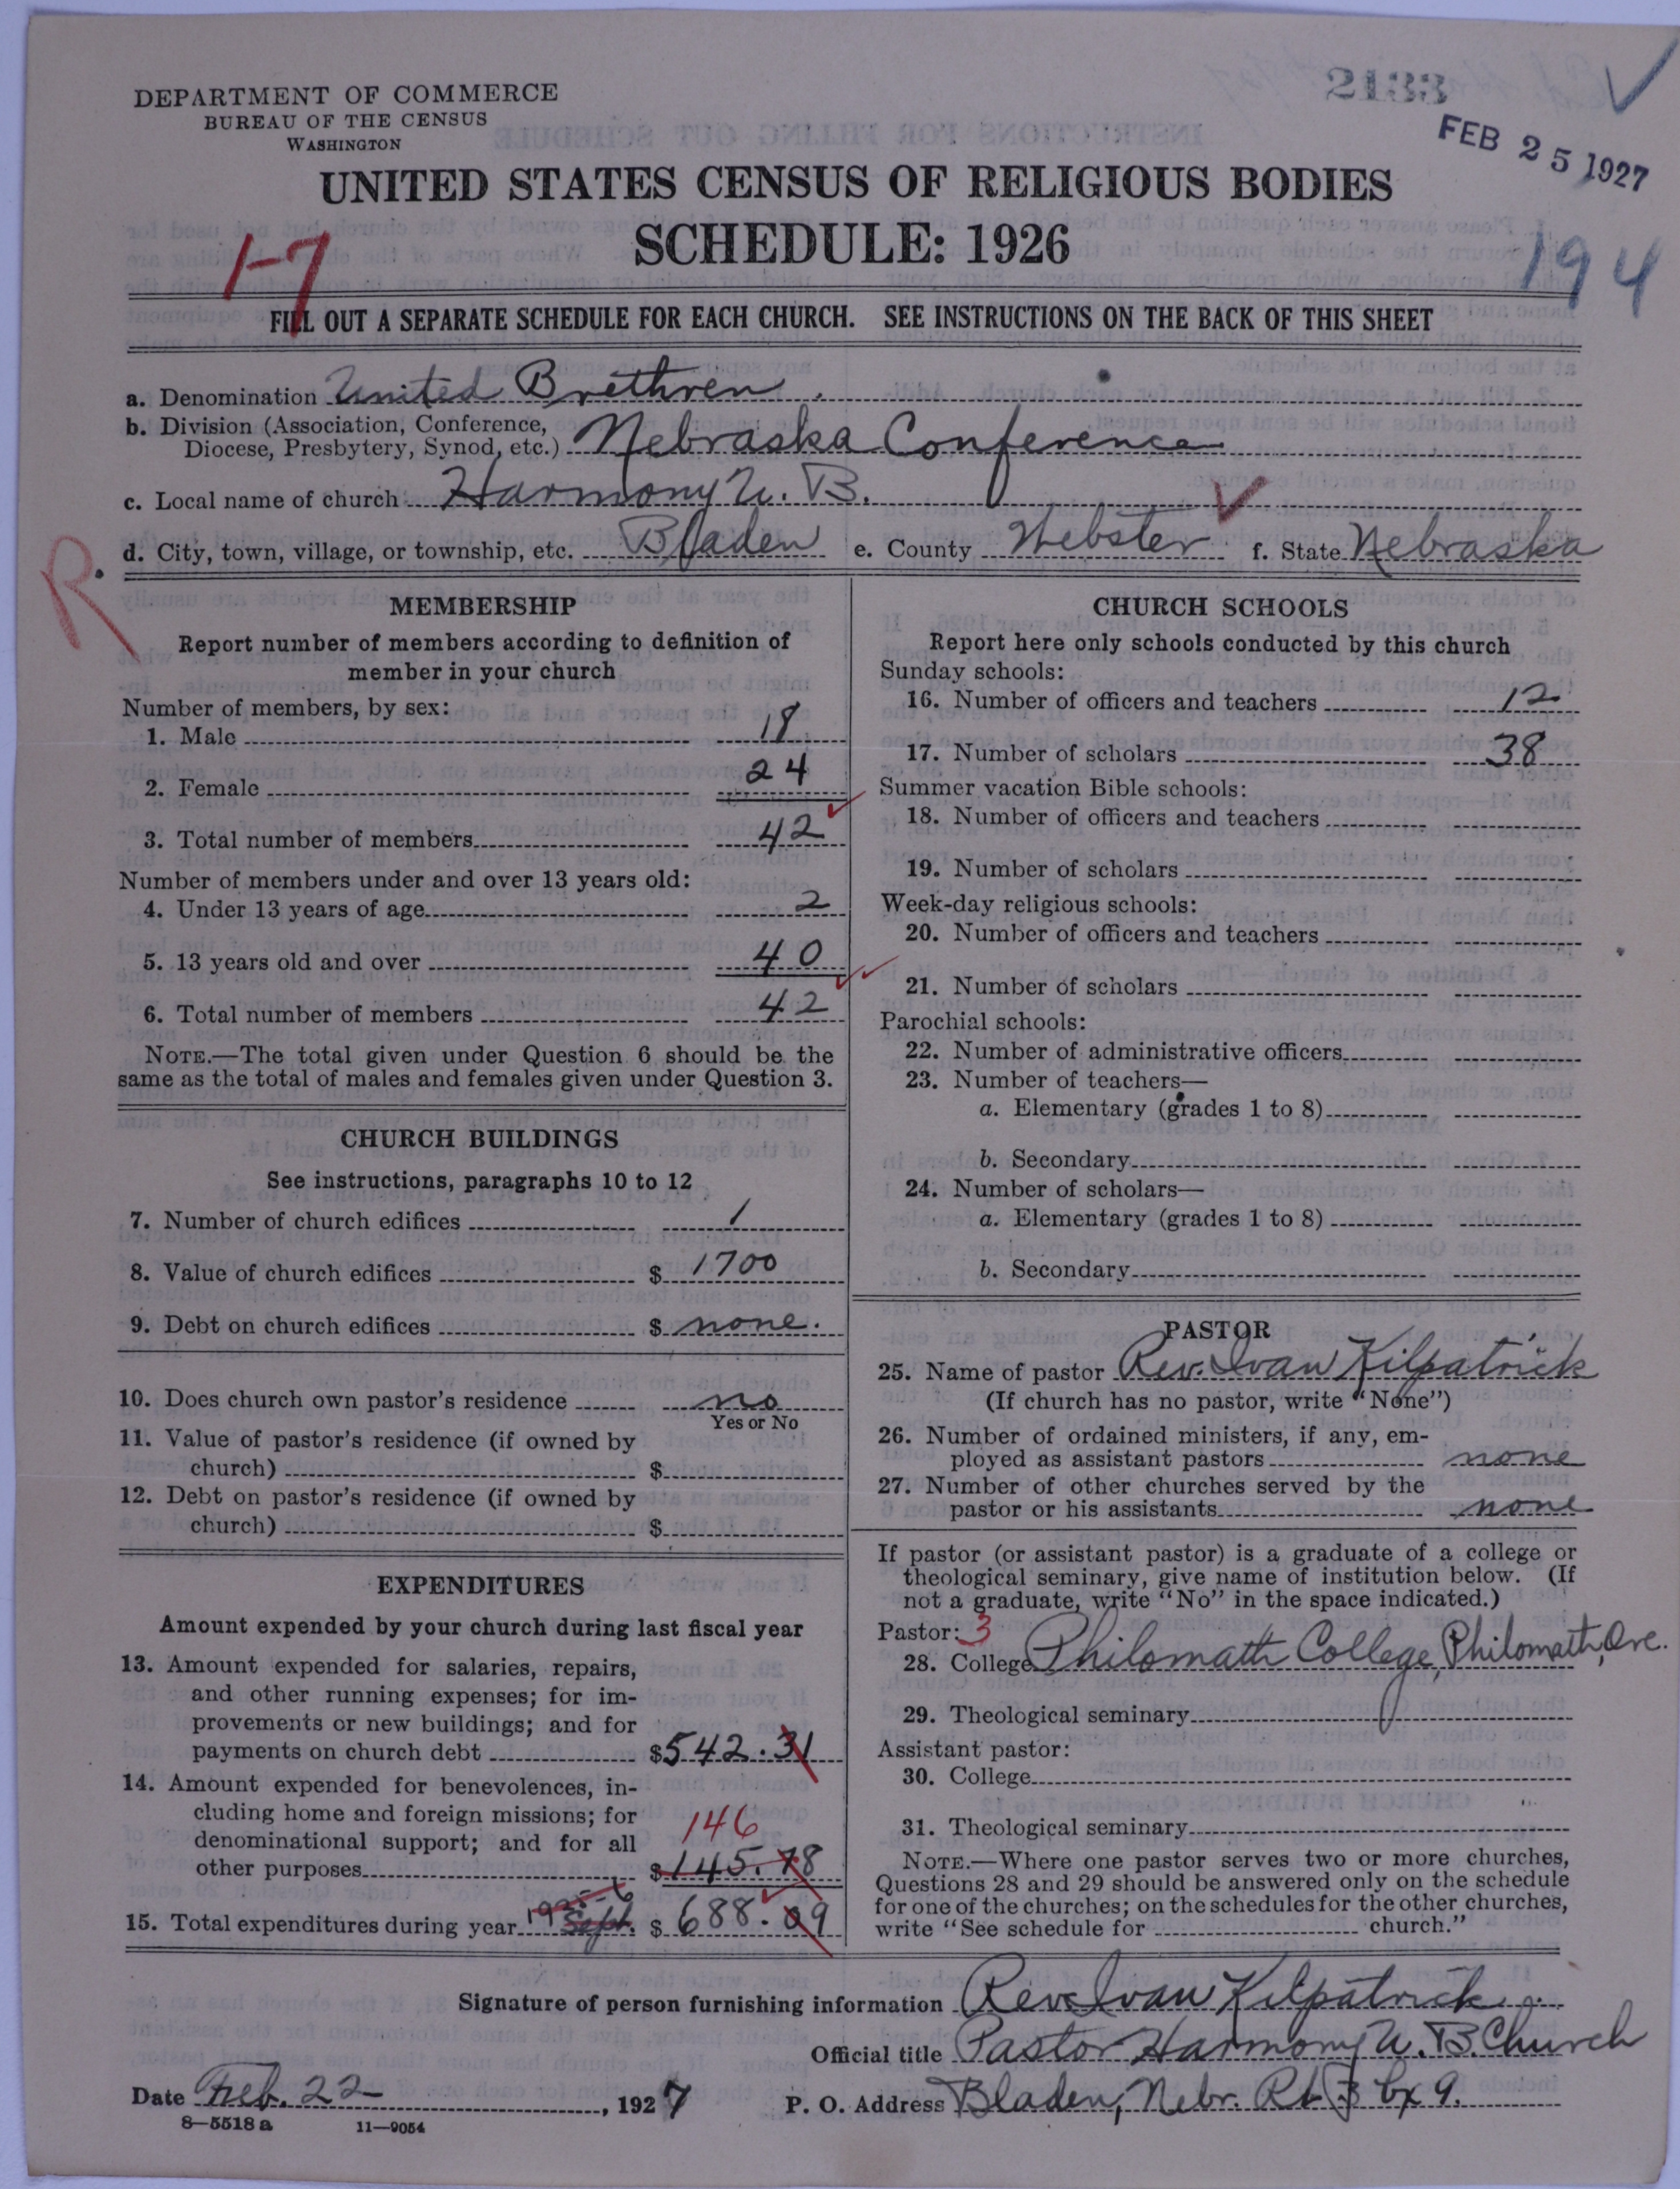 DEPARTMENT OF COMMERCE
BUREAU OF THE CENSUS
WASHINGTON
2133
FEB 25 1927
UNITED STATES CENSUS OF RELIGIOUS BODIES
SCHEDULE: 1926
1-7
194
FILL OUT A SEPARATE SCHEDULE FOR EACH CHURCH. SEE INSTRUCTIONS ON THE BACK OF THIS SHEET
a. Denomination United Brethren.
b. Division (Association, Conference, Diocese, Presbytery, Synod, etc.) Nebraska Conference
c. Local name of church Harmony U. B.
d. City, town, village, or township, etc. Bladen e. County Webster f. State Nebraska
R.
MEMBERSHIP
Report number of members according to definition of
member in your church
Number of members, by sex:
1. Male 18
2. Female 24
3. Total number of members 42
Number of members under and over 13 years old:
4. Under 13 years of age 2
5. 13 years old and over 40
6. Total number of members 42
NOTE.—The total given under Question 6 should be the
same as the total of males and females given under Question 3.
CHURCH BUILDINGS
See instructions, paragraphs 10 to 12
7. Number of church edifices 1
8. Value of church edifices $ 1700
9. Debt on church edifices $ none.
10. Does church own pastor's residence no
Yes or No
11. Value of pastor's residence (if owned by
church) $
12. Debt on pastor's residence (if owned by
church) $
EXPENDITURES
Amount expended by your church during last fiscal year
13. Amount expended for salaries, repairs,
and other running expenses; for im-
provements or new buildings; and for
payments on church debt $542.31
14. Amount expended for benevolences, in-
cluding home and foreign missions; for
denominational support; and for all
146
other purposes $145.78
15. Total expenditures during year 1925-6 Sept. $ 688.09
CHURCH SCHOOLS
Report here only schools conducted by this church
Sunday schools:
16. Number of officers and teachers 12
17. Number of scholars 38
Summer vacation Bible schools:
18. Number of officers and teachers
19. Number of scholars
Week-day religious schools:
20. Number of officers and teachers
21. Number of scholars
Parochial schools:
22. Number of administrative officers
23. Number of teachers—
a. Elementary (grades 1 to 8)
b. Secondary
24. Number of scholars—
a. Elementary (grades 1 to 8)
b. Secondary
PASTOR
25. Name of pastor Rev. Ivan Kilpatrick
(If church has no pastor, write "None")
26. Number of ordained ministers, if any, em-
ployed as assistant pastors none
27. Number of other churches served by the
pastor or his assistants none
If pastor (or assistant pastor) is a graduate of a college or
theological seminary, give name of institution below. (If
not a graduate, write "No" in the space indicated.)
Pastor: 3
28. College Philomath College, Philomath, Ore.
29. Theological seminary
Assistant pastor:
30. College
31. Theological seminary
NOTE.—Where one pastor serves two or more churches,
Questions 28 and 29 should be answered only on the schedule
for one of the churches; on the schedules for the other churches,
write "See schedule for church."
Signature of person furnishing information Rev. Ivan Kilpatrick
Official title Pastor Harmony U. B. Church
Date Feb. 22, 1927 P. O. Address Bladen, Nebr. Rt 3 bx 9.
8—5518 a 11—9054